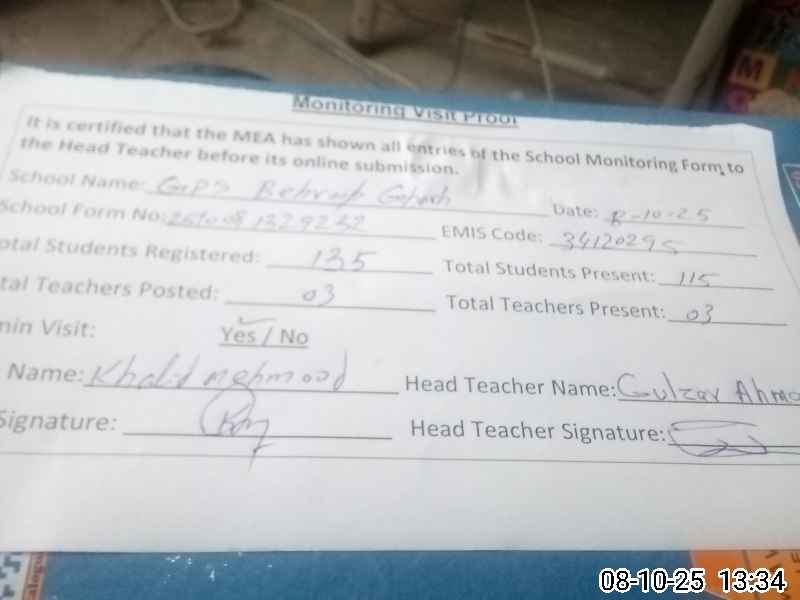 Monitoring Visit Proof
It is certified that the MEA has shown all entries of the School Monitoring Form to
the Head Teacher before its online submission.
School Name: GPS
Date: 8-10-25
School Form No:
EMIS Code: 34120295
otal Students Registered: 135
Total Students Present: 115
tal Teachers Posted: 03
Total Teachers Present: 03
min Visit: Yes / No
Name: Khalid mehmood
Head Teacher Name: Gulzar Ahma
Signature:
Head Teacher Signature:
M
08-10-25 13:34